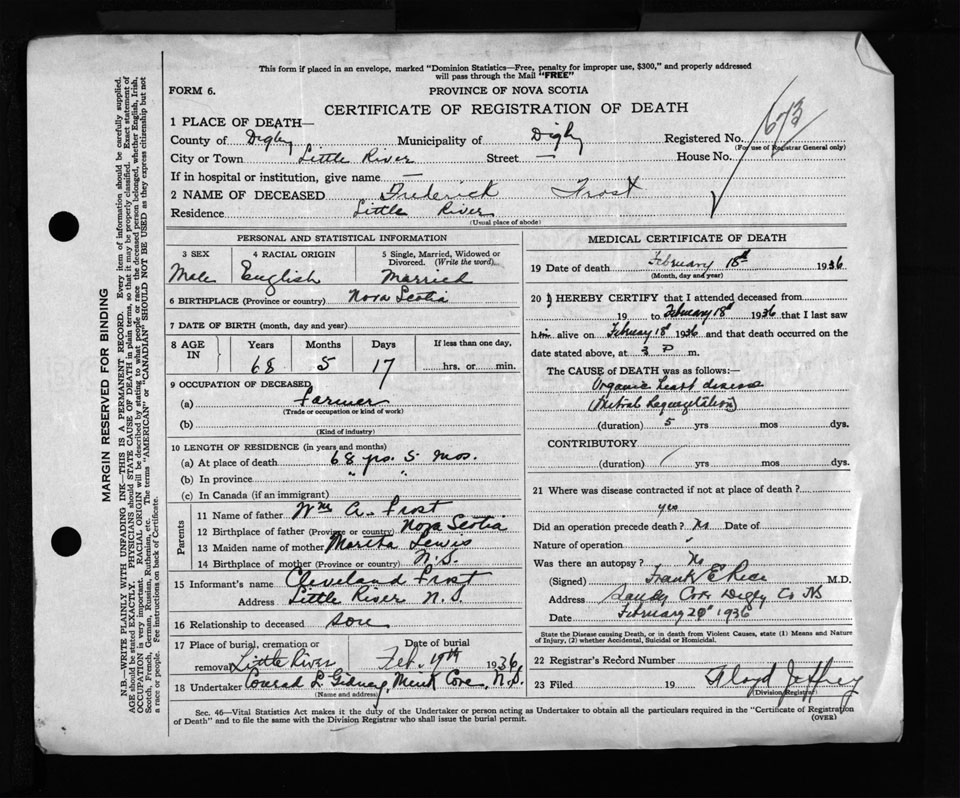 This form if placed in an envelope, marked "Dominion Statistics—Free, penalty for improper use, $300," and properly addressed
will pass through the Mail "FREE"
FORM 6.
PROVINCE OF NOVA SCOTIA
CERTIFICATE OF REGISTRATION OF DEATH
1 PLACE OF DEATH—
County of Digby Municipality of Digby Registered No. 673
(For use of Registrar General only)
City or Town Little River Street — House No.
If in hospital or institution, give name —
2 NAME OF DECEASED Frederick Frost
Residence Little River
(Usual place of abode)
PERSONAL AND STATISTICAL INFORMATION
3 SEX 4 RACIAL ORIGIN 5 Single, Married, Widowed or
Divorced. (Write the word)
Male English Married
6 BIRTHPLACE (Province or country) Nova Scotia
7 DATE OF BIRTH (month, day and year)
8 AGE IN Years Months Days If less than one day,
68 5 17 hrs. or min.
9 OCCUPATION OF DECEASED
(a) Farmer
(Trade or occupation or kind of work)
(b)
(Kind of industry)
10 LENGTH OF RESIDENCE (in years and months)
(a) At place of death 68 yrs. 5 mos.
(b) In province " "
(c) In Canada (if an immigrant)
Parents
11 Name of father Wm A. Frost
12 Birthplace of father (Province or country) Nova Scotia
13 Maiden name of mother Martha Lewis
14 Birthplace of mother N.S.
15 Informant's name Cleveland Frost
Address Little River N.S
16 Relationship to deceased son
17 Place of burial, cremation or Date of burial
removal Little River Feb. 19th 1936
18 Undertaker Conrad L Gidney, Mink Cove, N.S.
(Name and address)
MEDICAL CERTIFICATE OF DEATH
19 Date of death February 18th 1936
(Month, day and year)
20 I HEREBY CERTIFY that I attended deceased from
19 to February 18th 1936 that I last saw
him alive on February 18th 1936 and that death occurred on the
date stated above, at 3 P m.
The CAUSE of DEATH was as follows:—
Organic heart disease
(Mitral Regurgitation)
(duration) 5 yrs mos dys.
CONTRIBUTORY
(duration) yrs mos dys.
21 Where was disease contracted if not at place of death?
yes
Did an operation precede death? No Date of
Nature of operation "
Was there an autopsy? No
(Signed) Frank E Rice M.D.
Address Sandy Cove Digby Co NS
Date February 20th 1936
State the Disease causing Death, or in death from Violent Causes, state (1) Means and Nature
of Injury, (2) whether Accidental, Suicidal or Homicidal.
22 Registrar's Record Number
23 Filed 19 Floyd Jeffrey
(Division Registrar)
Sec. 46—Vital Statistics Act makes it the duty of the Undertaker or person acting as Undertaker to obtain all the particulars required in the "Certificate of Registration
of Death" and to file the same with the Division Registrar who shall issue the burial permit.
(OVER)
MARGIN RESERVED FOR BINDING
N.B.—WRITE PLAINLY WITH UNFADING INK—THIS IS A PERMANENT RECORD. Every item of information should be carefully supplied.
AGE should be stated EXACTLY. PHYSICIANS should STATE CAUSE OF DEATH in plain terms, so that it may be properly classified. Exact statement of
OCCUPATION is very important. RACIAL ORIGIN will be described by stating to what people or race the deceased person belonged, whether English, Irish,
Scotch, French, German, Russian, Ruthenian, etc. The terms "AMERICAN" or "CANADIAN" SHOULD NOT BE USED as they express citizenship but not
a race or people. See instructions on back of Certificate.